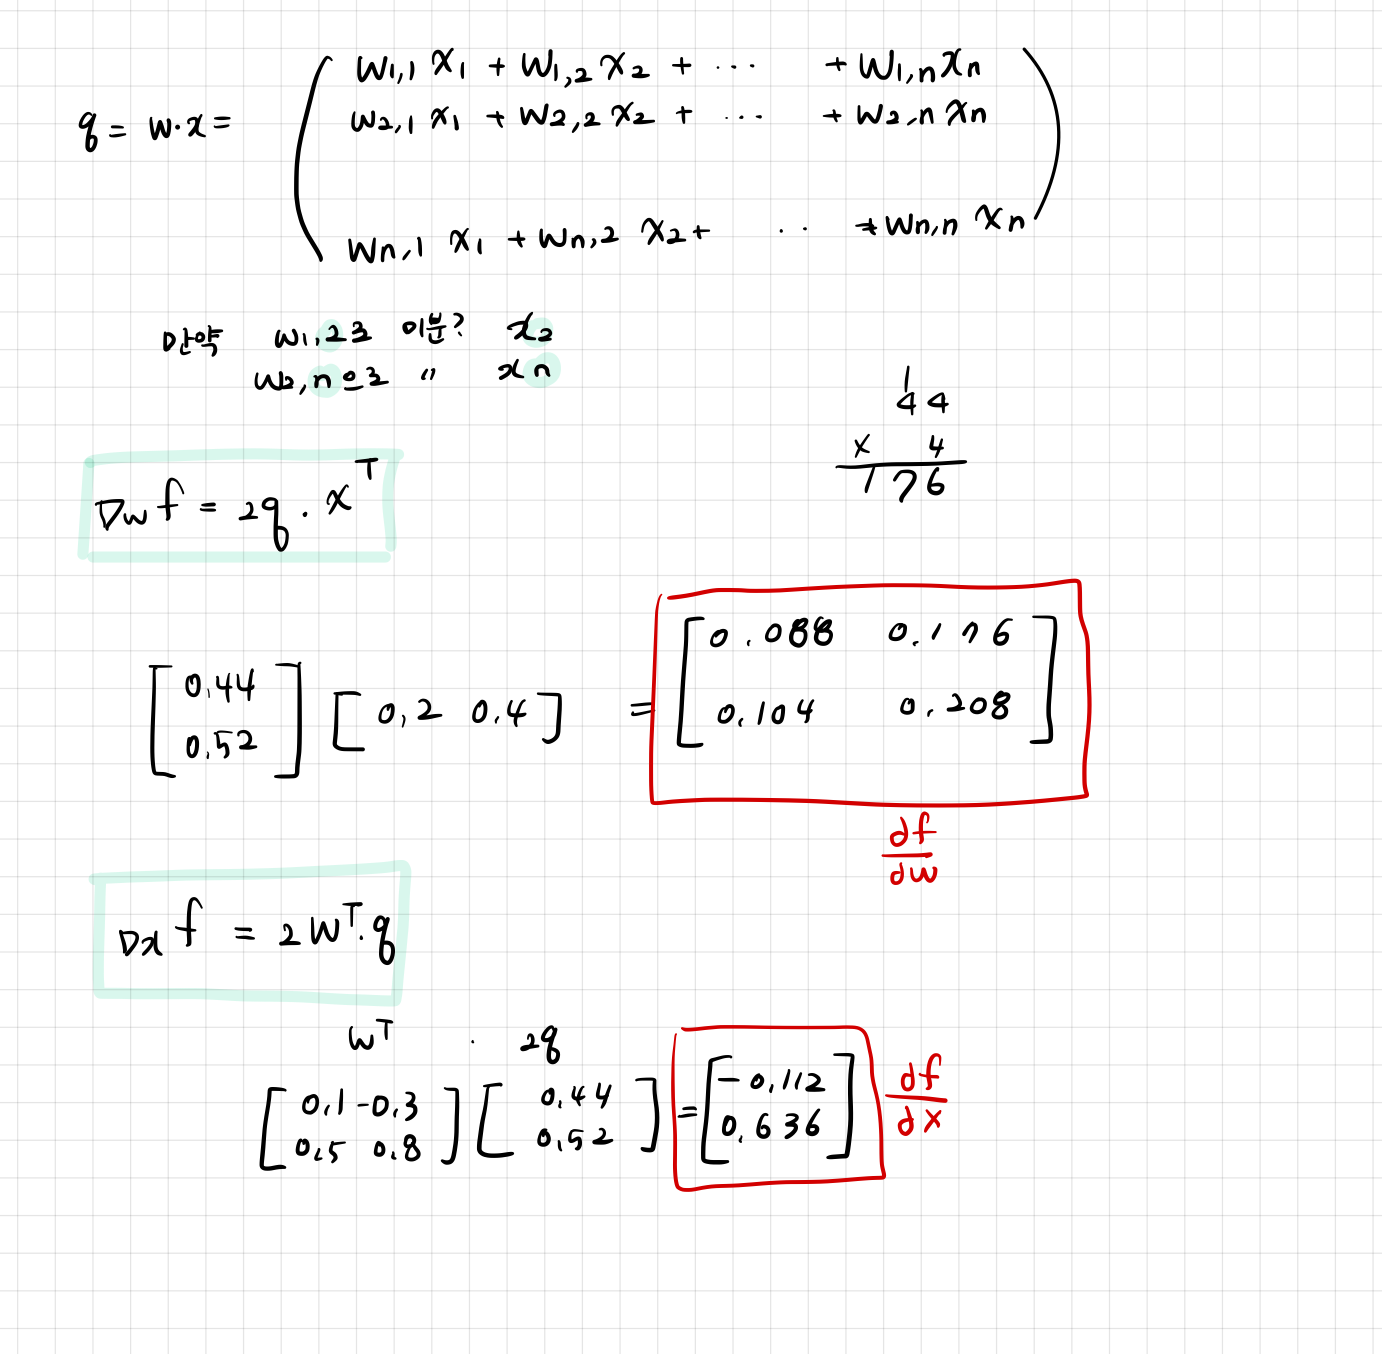 q = w·x = ( w1,1 x1 + w1,2 x2 + ··· + w1,n xn
w2,1 x1 + w2,2 x2 + ··· + w2,n xn
wn,1 x1 + wn,2 x2 + ·· + wn,n xn )
만약 w1,2로 미분? x2
w2,n으로 〃 xn
1
44
x 4
176
∇w f = 2q · x^T
[ 0.44
0.52 ] [ 0,2 0.4 ] = [ 0.088 0.176
0.104 0.208 ]
df
dw
∇x f = 2W^T·q
W^T · 2q
[ 0.1 -0.3
0.5 0.8 ] [ 0.44
0.52 ] = [ -0.112
0.636 ]
df
dx